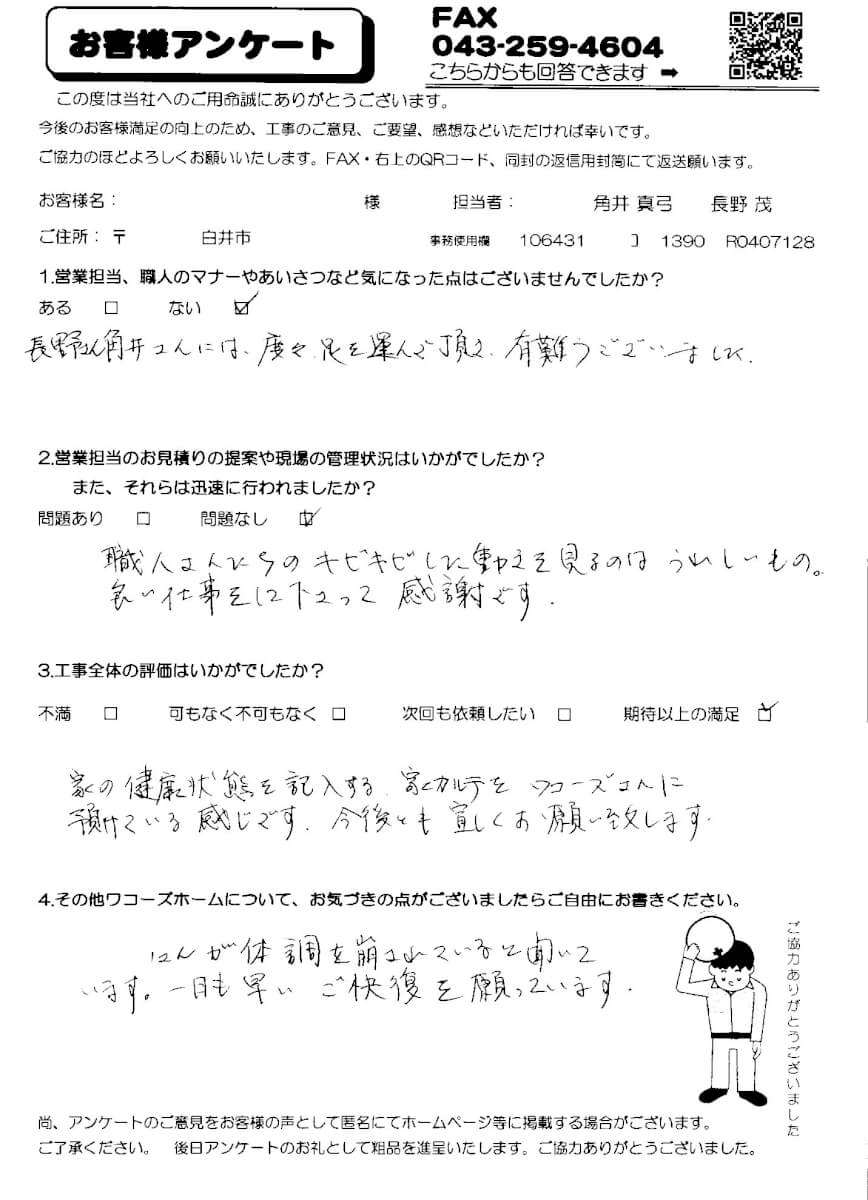 お客様アンケート
FAX
043-259-4604
こちらからも回答できます ➡
この度は当社へのご用命誠にありがとうございます。
今後のお客様満足の向上のため、工事のご意見、ご要望、感想などいただければ幸いです。
ご協力のほどよろしくお願いいたします。FAX・右上のQRコード、同封の返信用封筒にて返送願います。
お客様名： 様 担当者： 角井 真弓 長野 茂
ご住所：〒 白井市 事務使用欄 106431 】 1390 R0407128
1.営業担当、職人のマナーやあいさつなど気になった点はございませんでしたか？
ある □ ない ☑
長野さん角井さんには、度々、足を運んで頂き、有難うございました。
2.営業担当のお見積りの提案や現場の管理状況はいかがでしたか？
また、それらは迅速に行われましたか？
問題あり □ 問題なし ☑
職人さんたちのキビキビした動きを見るのはうれしいもの。
良い仕事をして下さって感謝です.
3.工事全体の評価はいかがでしたか？
不満 □ 可もなく不可もなく □ 次回も依頼したい □ 期待以上の満足 ☑
家の健康状態を記入する、家カルテをワコーズさんに
預けている感じです. 今後とも宜しくお願い致します.
4.その他ワコーズホームについて、お気づきの点がございましたらご自由にお書きください。
さんが体調を崩されていると聞いて
います。一日も早いご快復を願っています.
ご協力ありがとうございました
尚、アンケートのご意見をお客様の声として匿名にてホームページ等に掲載する場合がございます。
ご了承ください。 後日アンケートのお礼として粗品を進呈いたします。ご協力ありがとうございました。